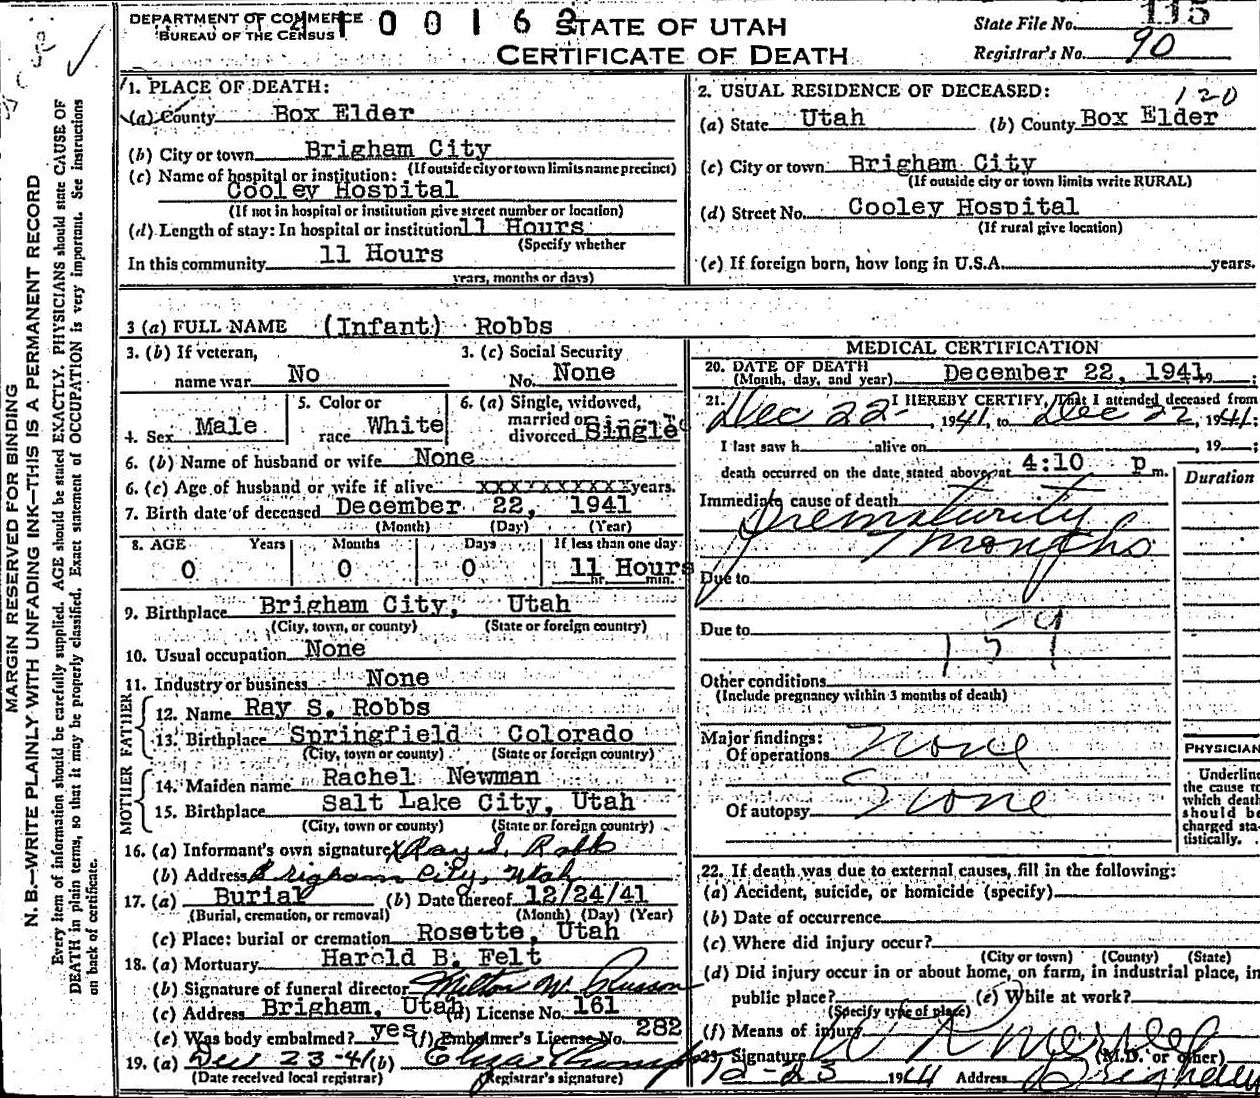 DEPARTMENT OF COMMERCE
BUREAU OF THE CENSUS
1 0 0 1 6
STATE OF UTAH
CERTIFICATE OF DEATH
State File No. 115
Registrar's No. 90
MARGIN RESERVED FOR BINDING
N. B.—WRITE PLAINLY WITH UNFADING INK—THIS IS A PERMANENT RECORD
Every item of information should be carefully supplied. AGE should be stated EXACTLY. PHYSICIANS should state CAUSE OF
DEATH in plain terms, so that it may be properly classified. Exact statement of OCCUPATION is very important. See instructions
on back of certificate.
1. PLACE OF DEATH:
(a) County Box Elder
(b) City or town Brigham City
(If outside city or town limits name precinct)
(c) Name of hospital or institution:
Cooley Hospital
(If not in hospital or institution give street number or location)
(d) Length of stay: In hospital or institution 11 Hours
(Specify whether
In this community 11 Hours
years, months or days)
2. USUAL RESIDENCE OF DECEASED:
120
(a) State Utah (b) County Box Elder
(c) City or town Brigham City
(If outside city or town limits write RURAL)
(d) Street No. Cooley Hospital
(If rural give location)
(e) If foreign born, how long in U.S.A. years.
3 (a) FULL NAME (Infant) Robbs
3. (b) If veteran,
name war No
3. (c) Social Security
No. None
4. Sex Male
5. Color or
race White
6. (a) Single, widowed,
married or
divorced Single
6. (b) Name of husband or wife None
6. (c) Age of husband or wife if alive XXXXXXXXXX years.
7. Birth date of deceased December 22, 1941
(Month) (Day) (Year)
8. AGE Years Months Days If less than one day
0 0 0 11 Hours
hr. min.
9. Birthplace Brigham City, Utah
(City, town, or county) (State or foreign country)
10. Usual occupation None
11. Industry or business None
FATHER
12. Name Ray S. Robbs
13. Birthplace Springfield Colorado
(City, town or county) (State or foreign country)
MOTHER
14. Maiden name Rachel Newman
15. Birthplace Salt Lake City, Utah
(City, town or county) (State or foreign country)
16. (a) Informant's own signature X Ray S. Robb
(b) Address Brigham City, Utah
17. (a) Burial (b) Date thereof 12/24/41
(Burial, cremation, or removal) (Month) (Day) (Year)
(c) Place: burial or cremation Rosette, Utah
18. (a) Mortuary Harold B. Felt
(b) Signature of funeral director Milton W.
(c) Address Brigham, Utah (d) License No. 161
(e) Was body embalmed? yes (f) Embalmer's License No. 282
19. (a) Dec 23-41 (b)
(Date received local registrar) (Registrar's signature)
MEDICAL CERTIFICATION
20. DATE OF DEATH
(Month, day, and year) December 22, 1941
21. I HEREBY CERTIFY, That I attended deceased from
Dec 22, 1941, to Dec 22, 1941;
I last saw h alive on , 19 ;
death occurred on the date stated above, at 4:10 p m.
Duration
Immediate cause of death
Prematurity
7 months
Due to
Due to
159
Other conditions
(Include pregnancy within 3 months of death)
Major findings:
Of operations none
Of autopsy none
PHYSICIAN
Underline
the cause to
which death
should be
charged sta-
tistically.
22. If death was due to external causes, fill in the following:
(a) Accident, suicide, or homicide (specify)
(b) Date of occurrence
(c) Where did injury occur?
(City or town) (County) (State)
(d) Did injury occur in or about home, on farm, in industrial place, in
public place? (e) While at work?
(Specify type of place)
(f) Means of injury
23. Signature (M.D. or other)
12-23 1941 Address